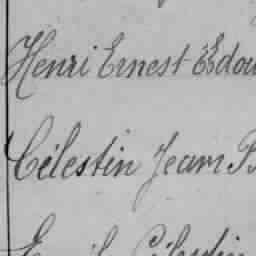 Henri Ernest Edou
Célestin Jean